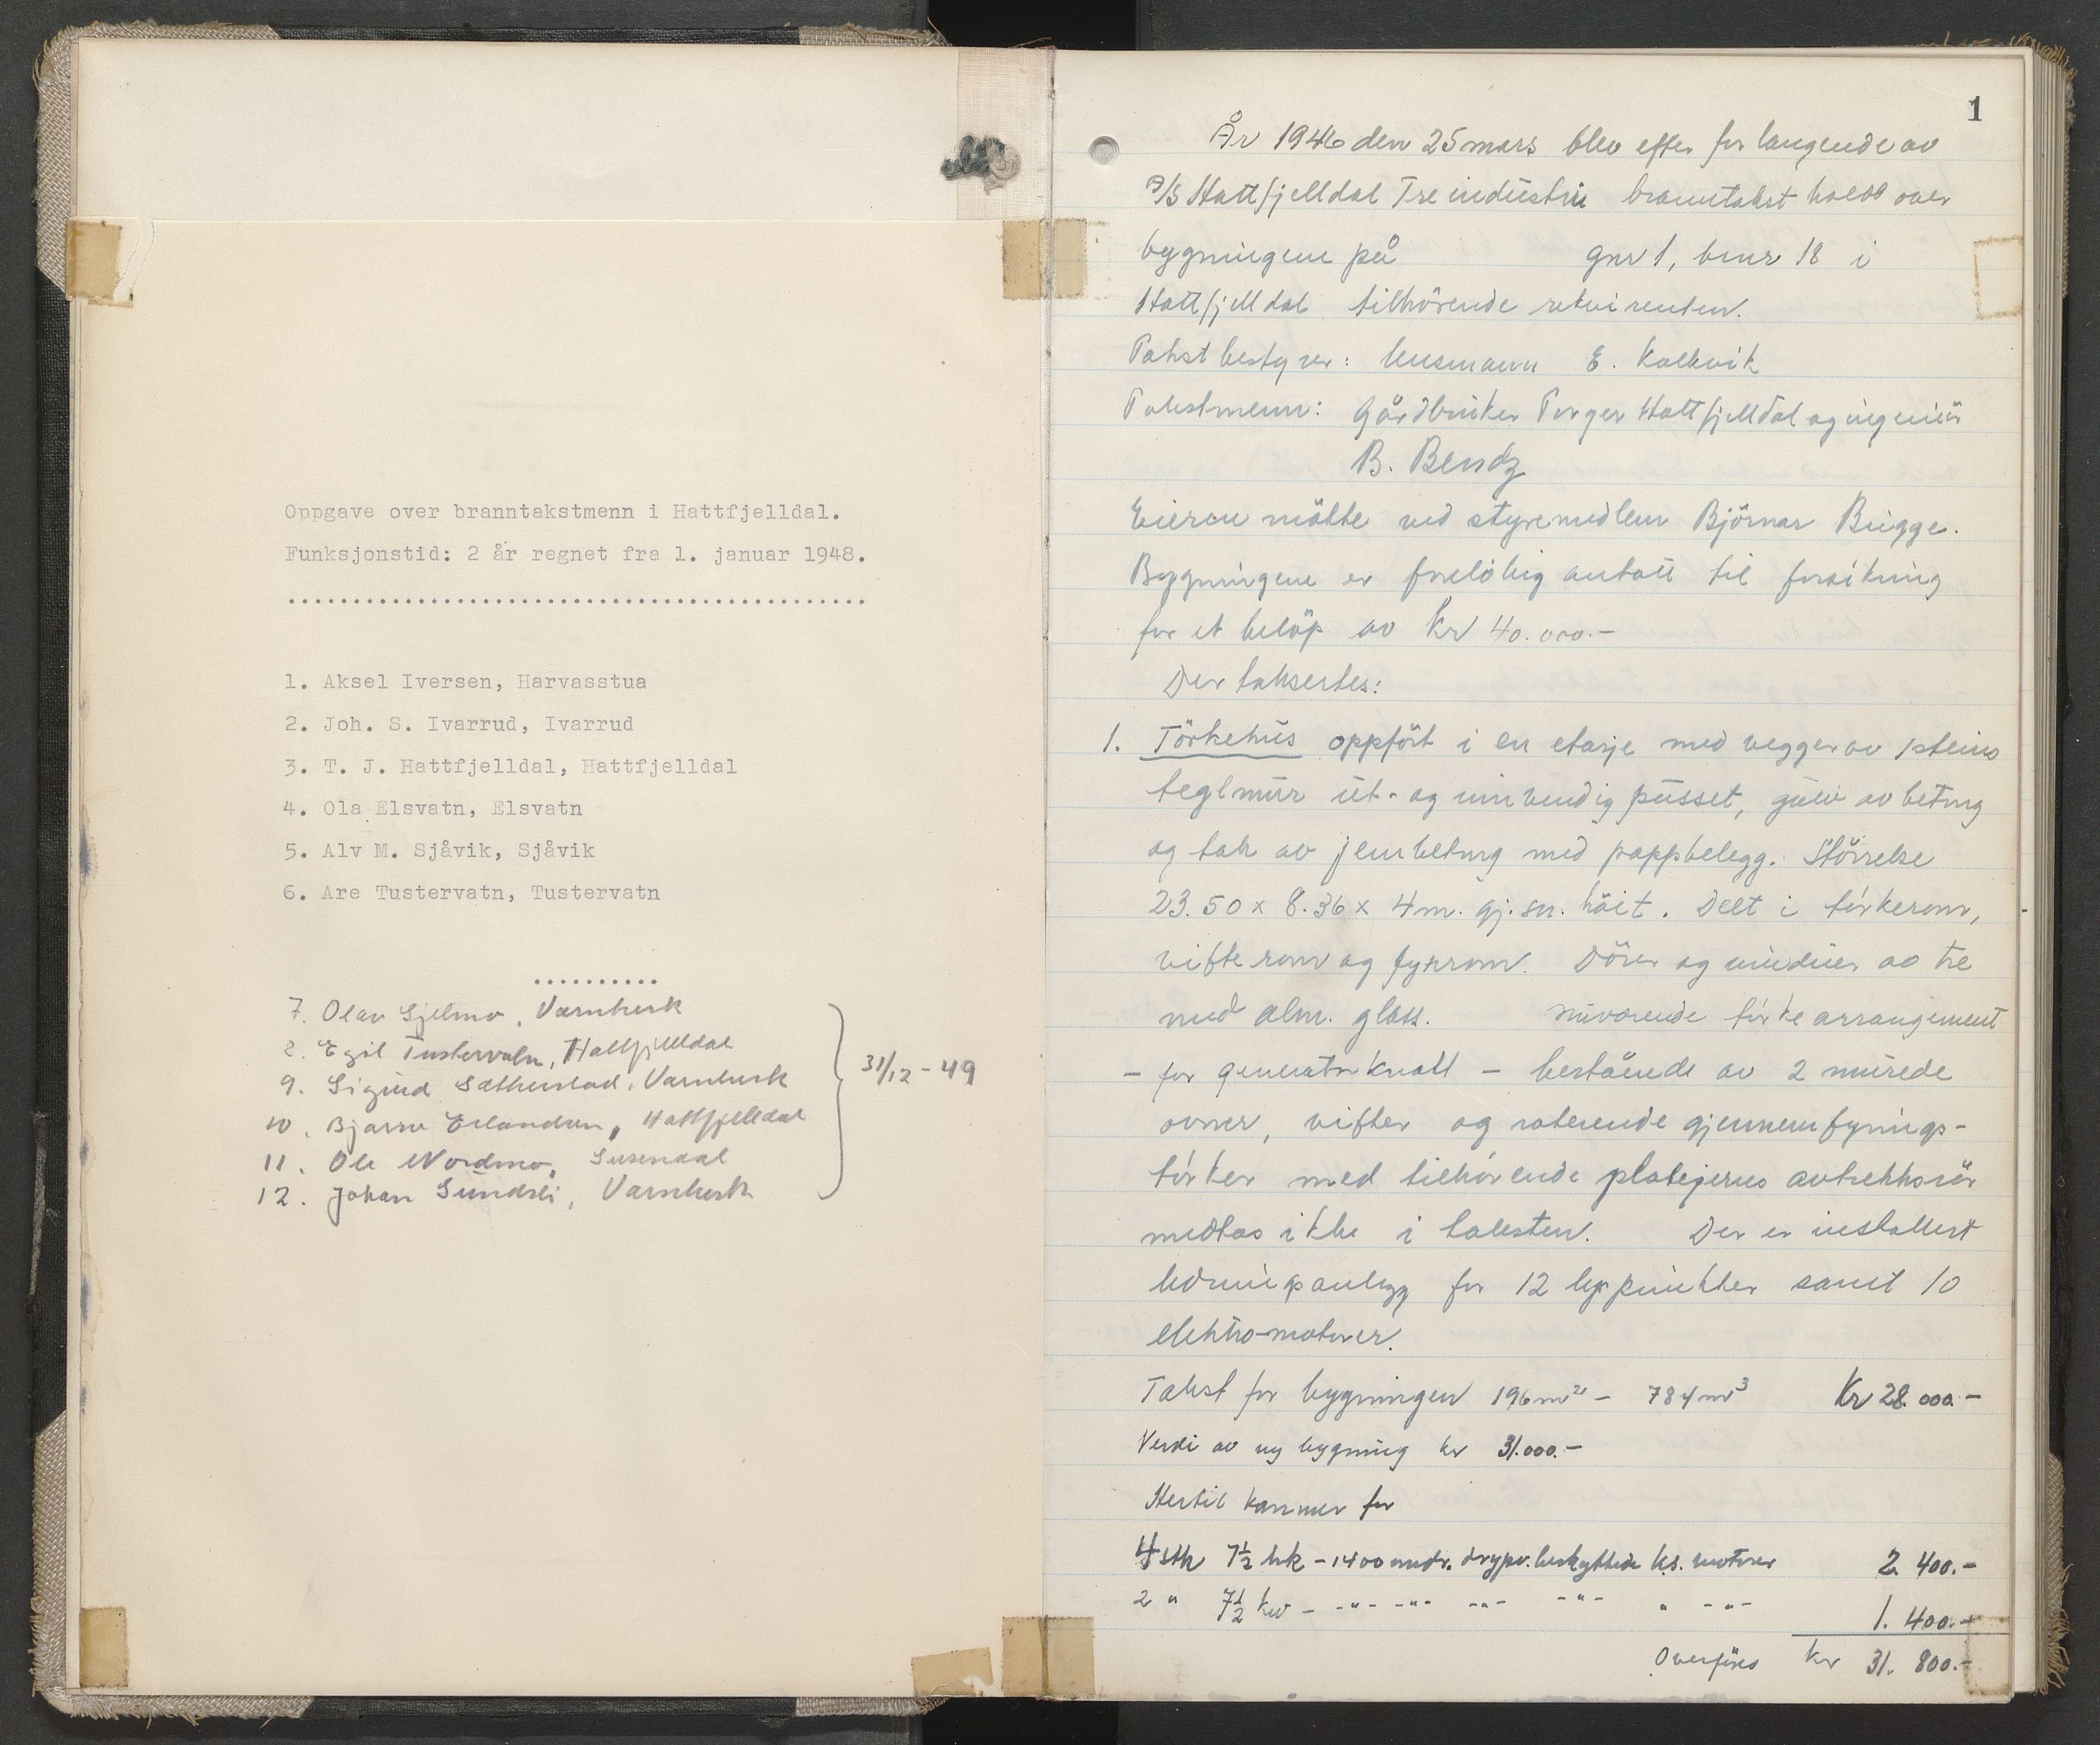 Oppgave over branntakstmenn i Hattfjelldal.
Funksjonstid: 2 år regnet fra 1. januar 1948.
1. Aksel Iversen, Harvasstua
2. Joh. S. Ivarrud, Ivarrud
3. T. J. Hattfjelldal, Hattfjelldal
4. Ola Elsvatn, Elsvatn
5. Alv M. Sjåvik, Sjåvik
6. Are Tustervatn, Tustervatn
7. Olav Gjelmo, Varntresk
8. Egil Tustervatn, Hattfjelldal
9. Sigurd Sæterstad, Varntresk
10. Bjarne Erlandsen, Hattfjelldal
11. Ole Nordmo, Susendal
12. Johan Sundsli, Varntresk
31/12 - 49
1
År 1946 den 25 mars blev efter forlangende av
A/S Hattfjelldal Treindustri branntakst holdt over
bygningene på gnr 1, bnr 18 i
Hattfjelldal tilhörende rekvirenten.
Takstbestyrer: lensmann E. Kolkvik
Takstmenn: Gårdbruker Torger Hattfjelldal og ingeniör
B. Bendz
Eieren mötte ved styremedlem Björnar Brügge.
Bygningene er forelöbig antatt til forsikring
for et belöp av Kr 40.000.-
Der taksertes:
1. Törkehus oppfört i en etasje med vegger av 1 steins
teglmur ut- og innvendig pusset, gulv av betong
og tak av jernbetong med pappbelegg. Störrelse
23.50 x 8.36 x 4 m. gj.sn. höit. Delt i törkerom,
vifterom og fyrrom. Dörer og vinduer av tre
med alm. glass. Nuværende törkearrangement
- for generatorknott - bestående av 2 murede
ovner, vifter og roterende gjennemfyrings-
törker med tilhörende platejerns avtrekksrör
medtas ikke i taksten. Der er installert
ledningsanlegg for 12 lyspunkter samt 10
elektro-motorer.
Takst for bygningen 196 m² - 784 m³ Kr 28.000.-
Verdi av ny bygning kr 31.000.-
Hertil kommer for
4 stk 7½ hk - 1400 omdr. drypv.beskyttede k.s. motorer 2.400.-
2 " 7½ kw - -"- -"- -"- -"- " -"- 1.400.-
Overföres kr 31.800.-